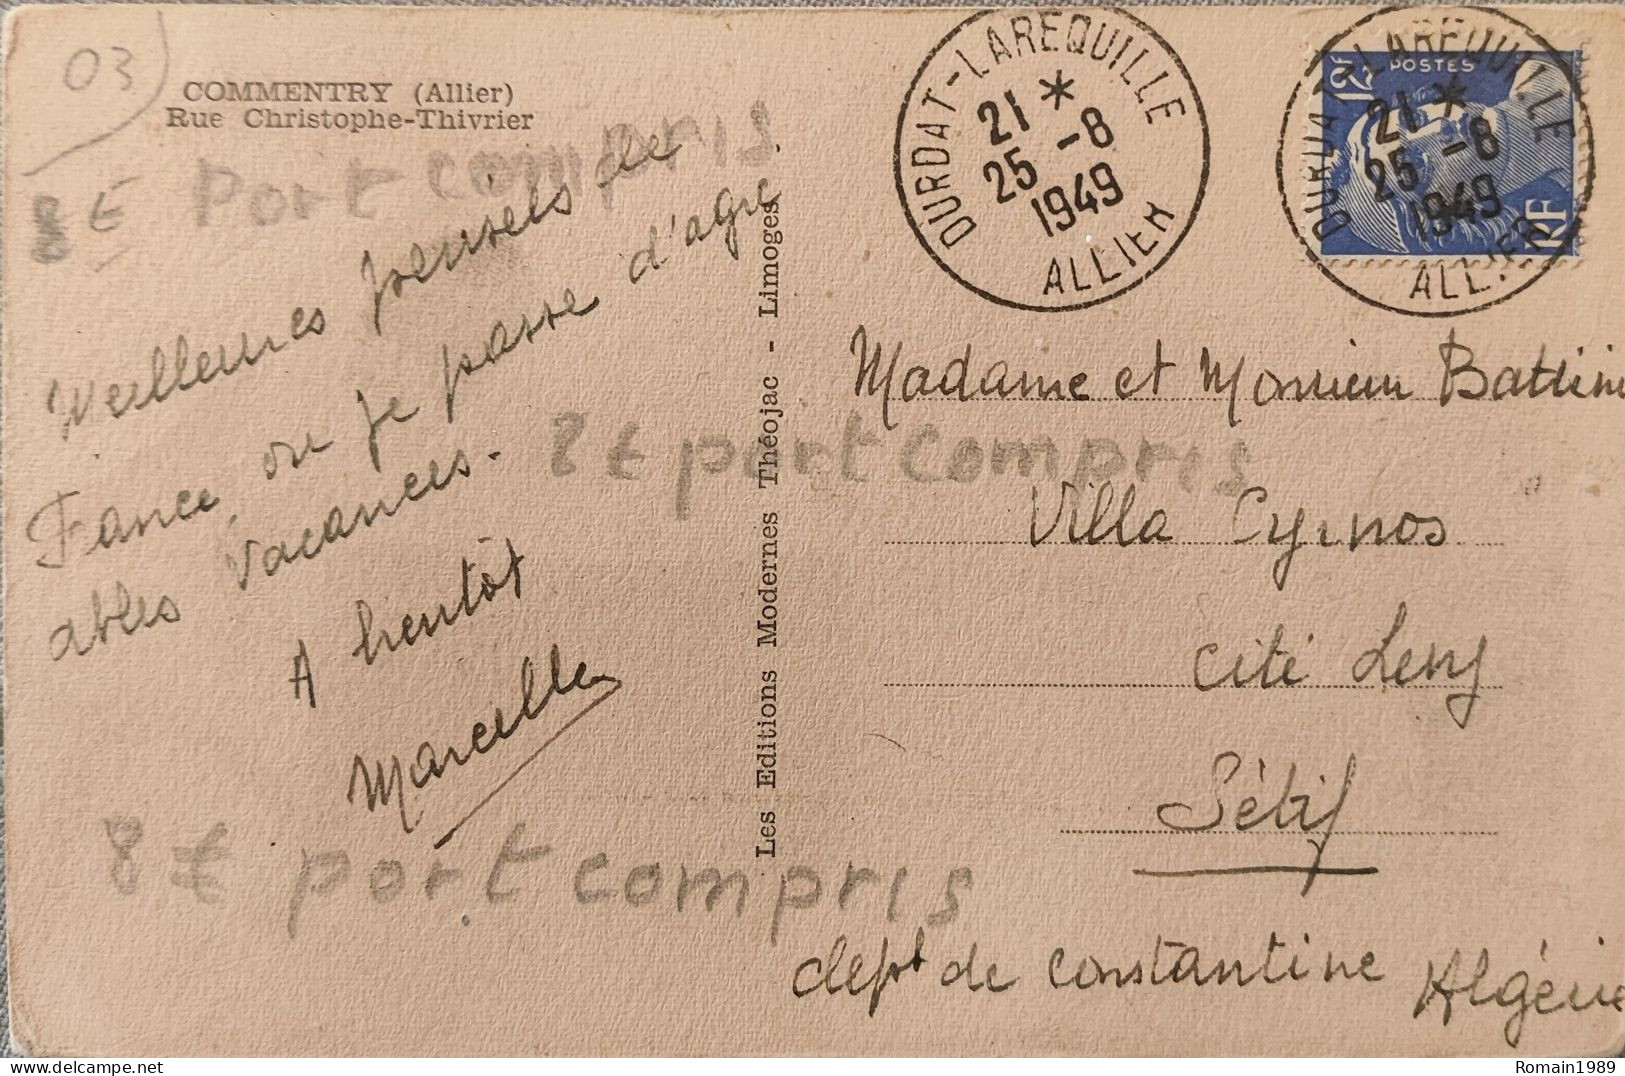 03
COMMENTRY (Allier)
Rue Christophe-Thivrier
8 € port compris
Meilleures pensées de
France, où je passe d'agré
ables vacances.
A bientôt
Marcelle
8 € port compris
8 € port compris
Les Editions Modernes Théojac - Limoges
DURDAT-LAREQUILLE
21 *
25 -8
1949
ALLIER
12F
POSTES
RF
DURDAT-LAREQUILLE
21 *
25 -8
1949
ALLIER
Madame et Monsieur Battini
Villa Cyrnos
Cité Levy
Sétif
dept de Constantine Algérie
delcampe.net
Romain1989